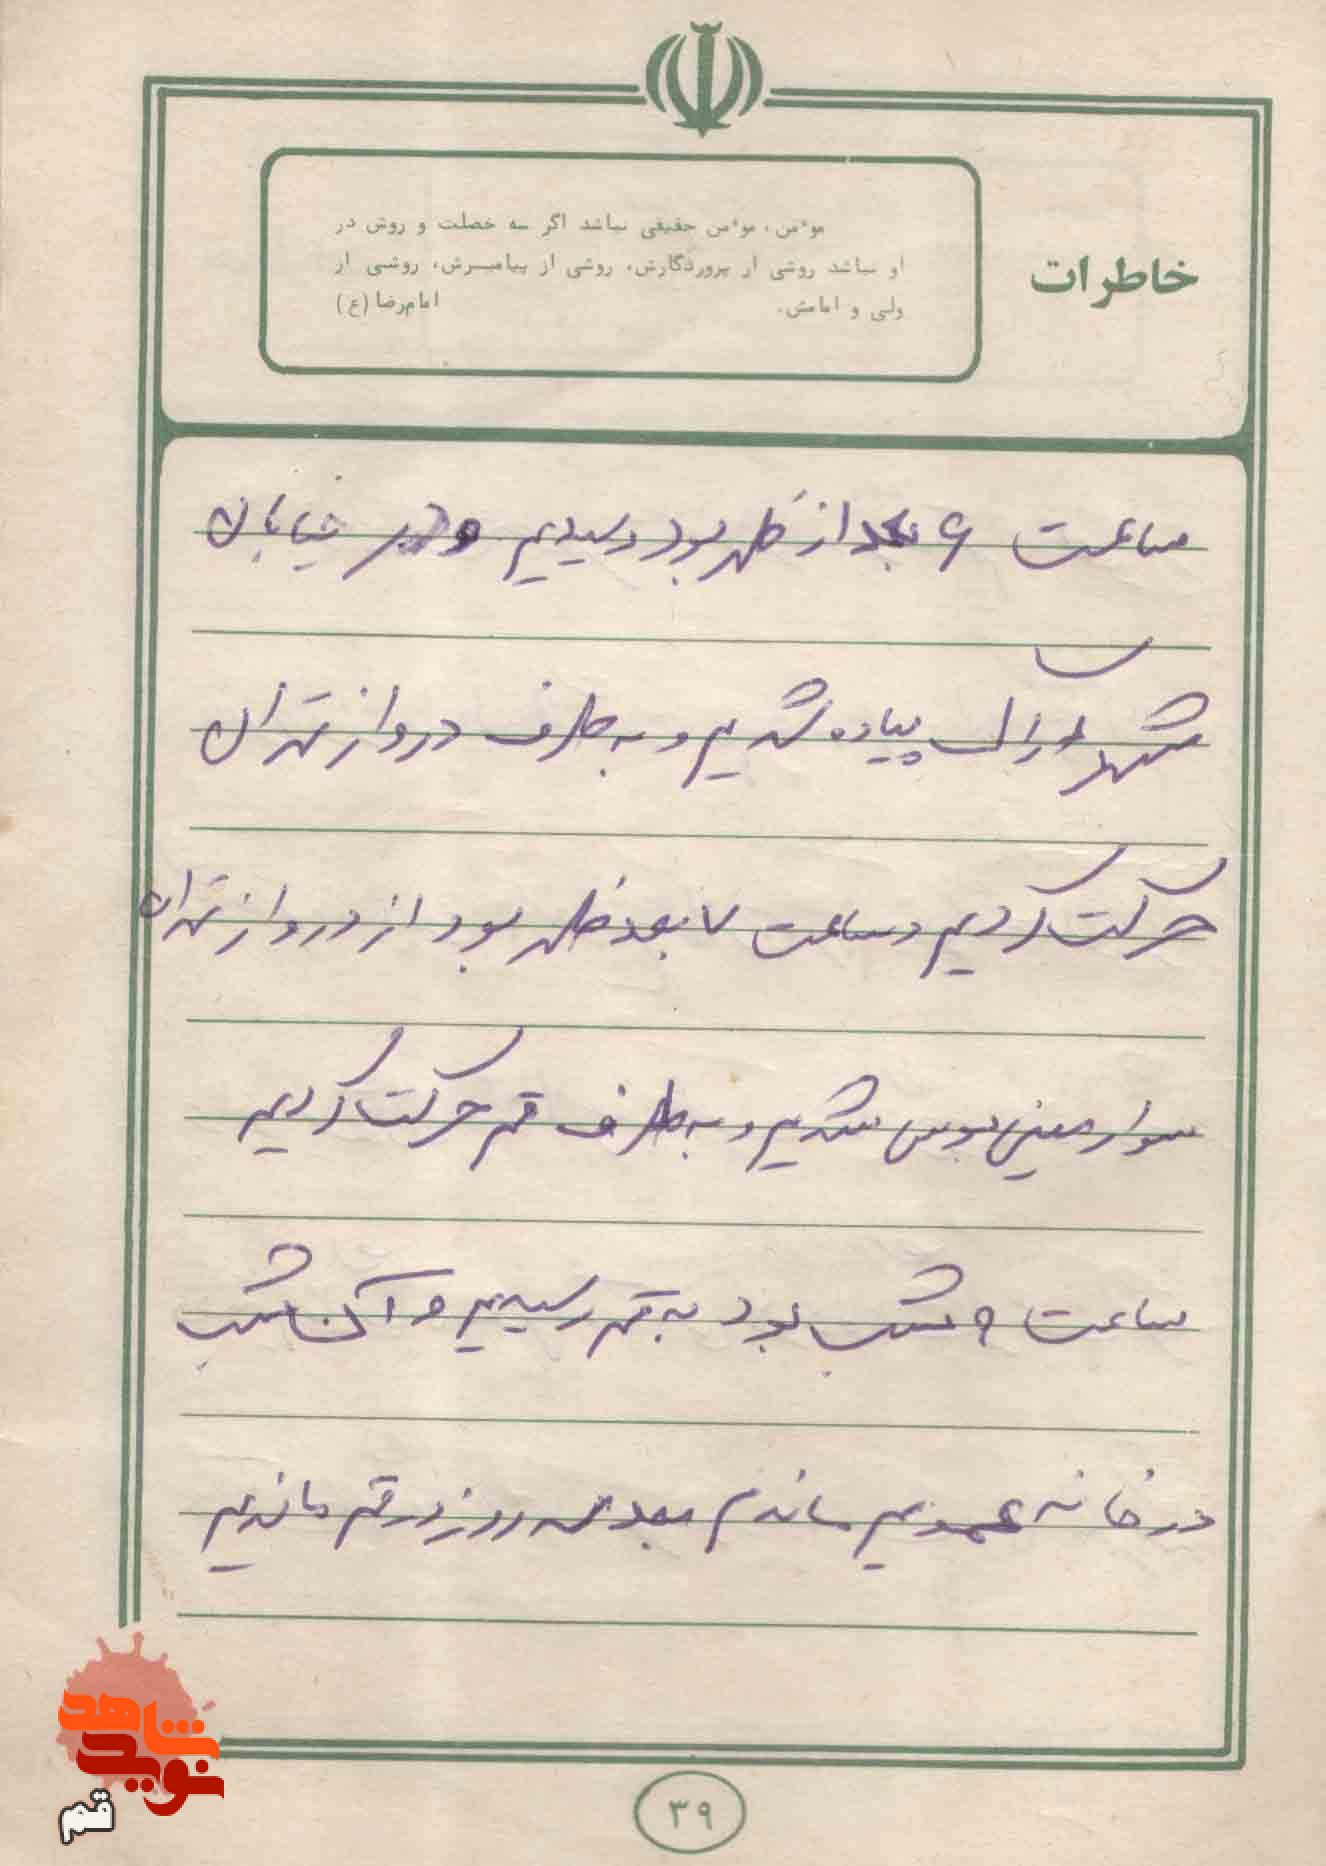 خاطرات
موءمن، موءمن حقیقی نباشد اگر سه خصلت و روش در
او نباشد روشی از پروردگارش، روشی از پیامبرش، روشی از
ولی و امامش. امام‌رضا (ع)
ساعت ۶ بعد از ظهر بود رسیدیم و در خیابان
شهر پیاده شدیم و به طرف درواز تهران
حرکت کردیم و ساعت ۷ بعد ظهر بود از درواز تهران
سوار مینی بوس شدیم و به طرف قم حرکت کردیم
ساعت ۹ شب بود به قم رسیدیم و آن شب
در خانه عمویم ماندم بعد سه روز در قم ماندیم
۳۹
نوید شاهد
قم